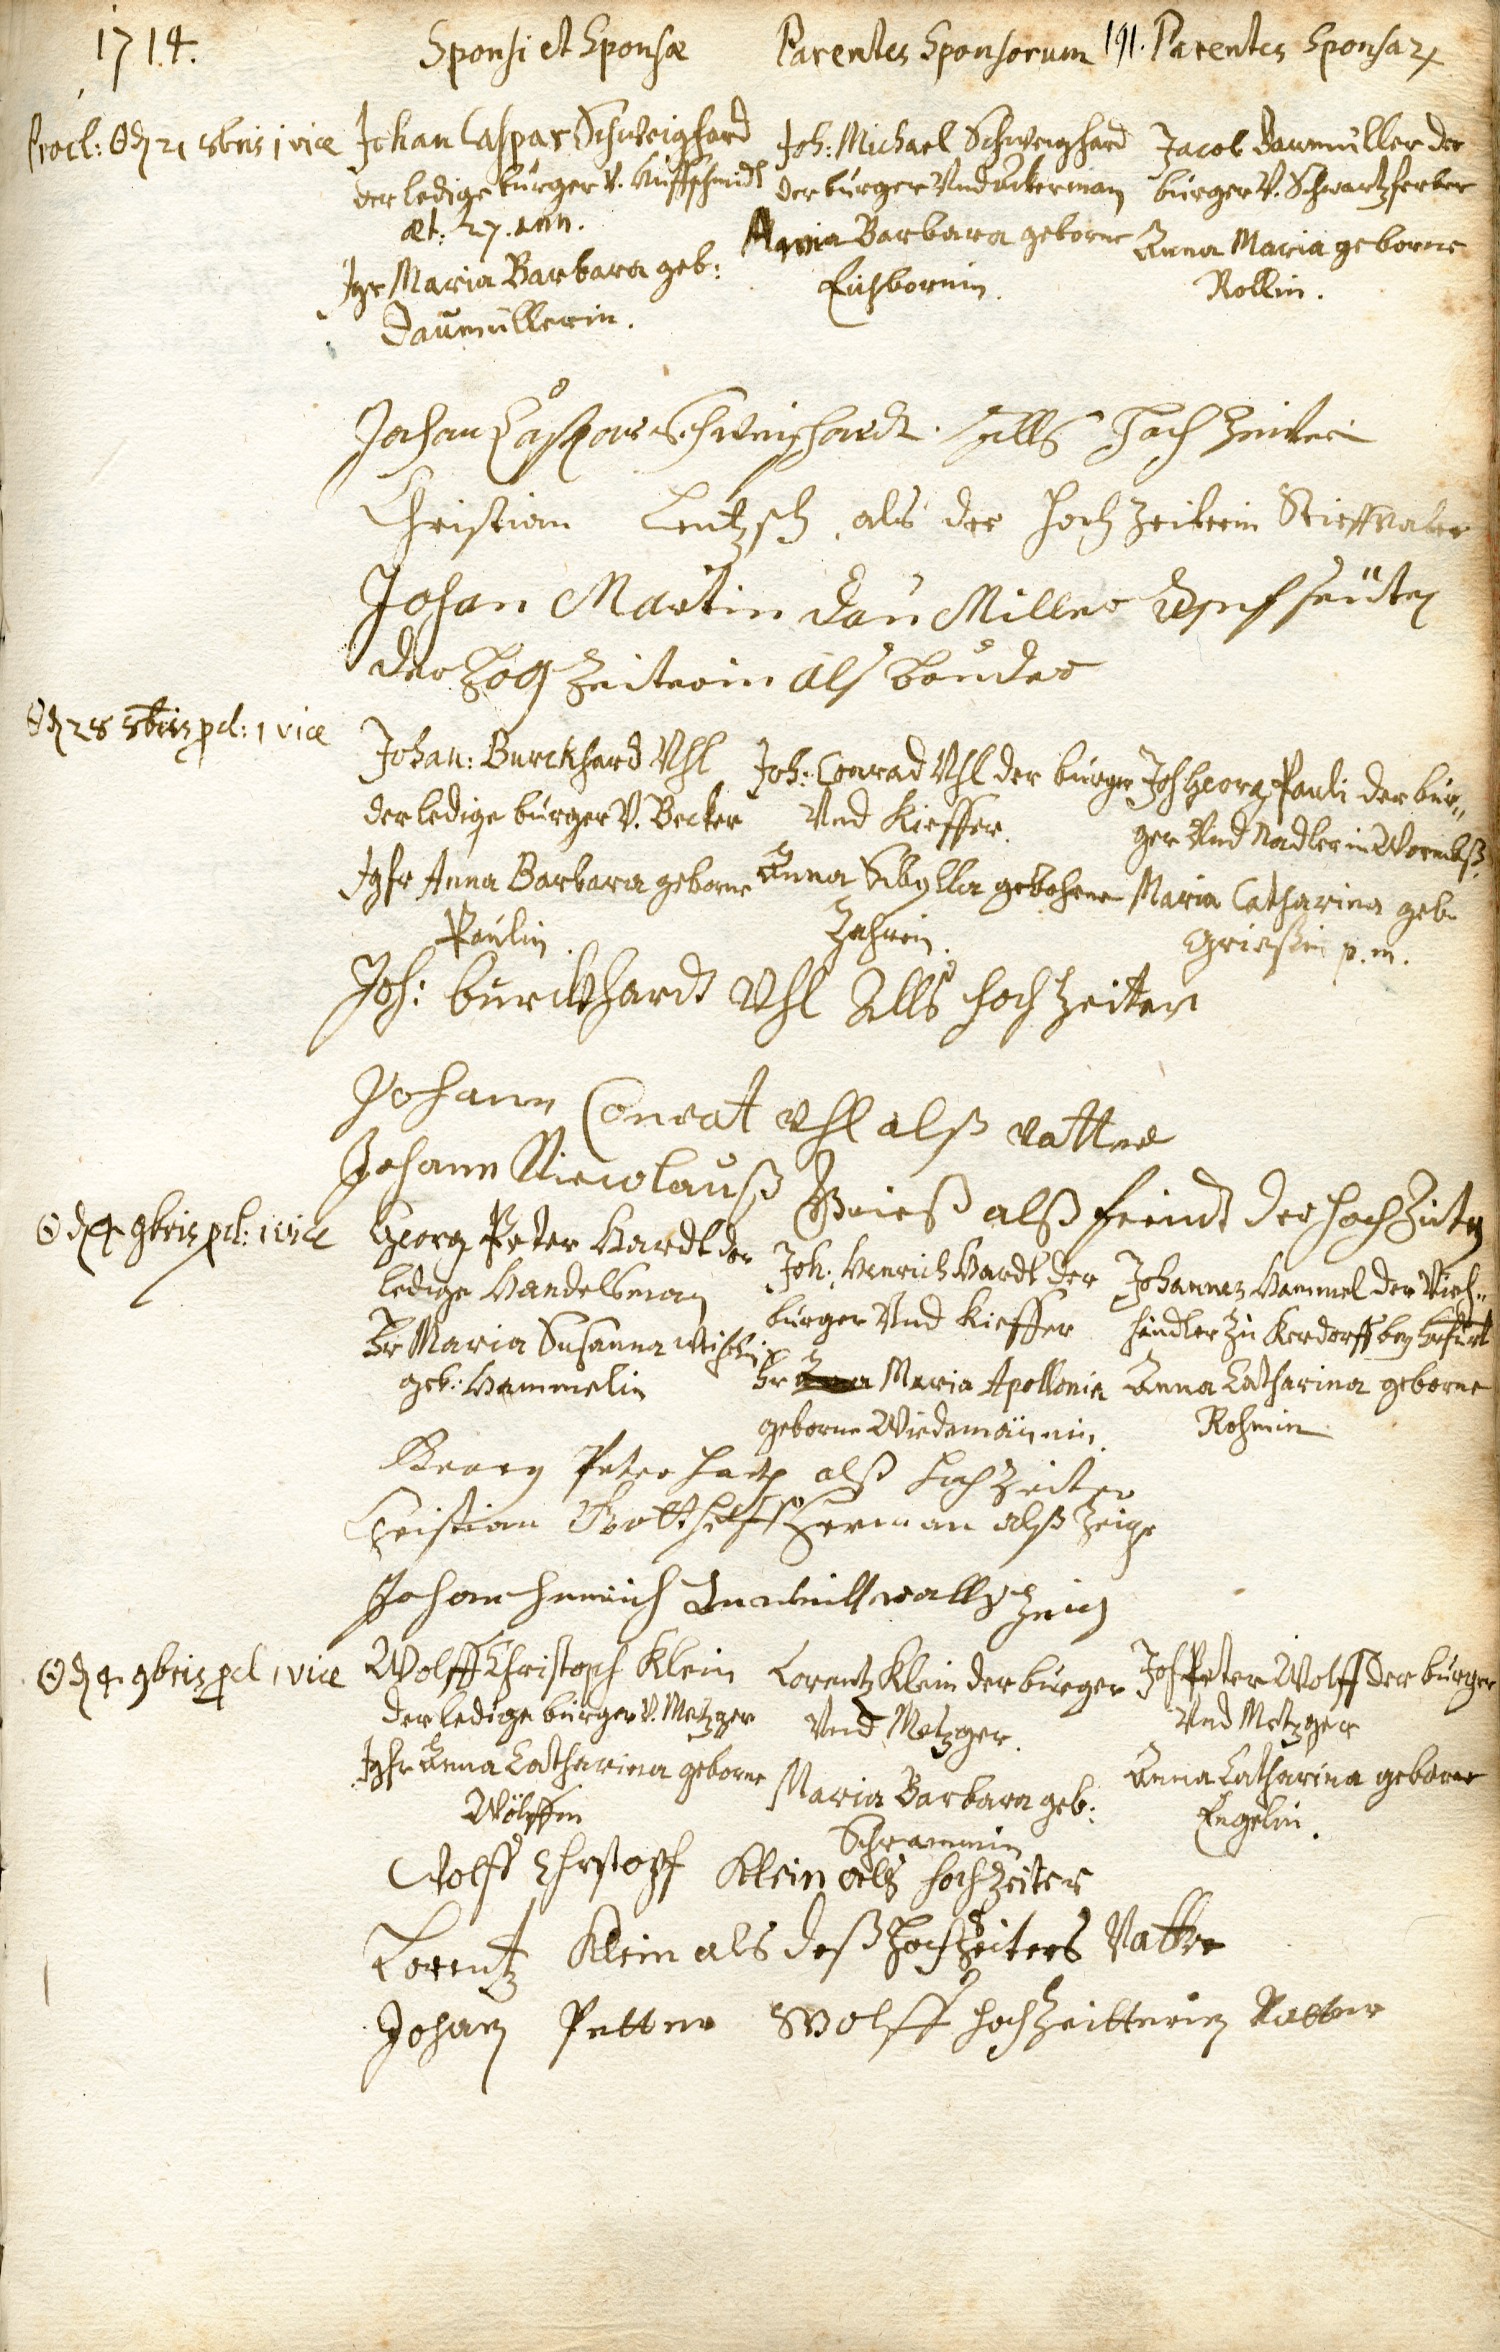 1714. Sponsi et Sponsæ Parentes Sponsorum 191. Parentes Sponsaꝝ
Procl: ☉ d 21 8bris 1 vice
Johan Caspar Schweighard
der ledige burger V. Huffschmidt
æt: 27. ann.
Jgfr Maria Barbara geb:
Daumüllerin.
Joh: Michael Schweighard
der burger Vnd Ackerman
Maria Barbara geborne
Eichbornin.
Jacob Daumüller der
burger V. Schwartzferber
Anna Maria geborne
Rollin.
Johan Caspar Schweighardt. alls Hochzeiter
Christian Lentzsch als der Hochzeiterin Stieffvater
Johan Martin dau Miller
der Hochzeiterin als bruder
☉ d 28 8bris pcl: 1 vice
Johan: Burckhard Vhl
der ledige burger V. Becker
Jgfr Anna Barbara geborne
Paulin.
Joh: Conrad Vhl der burger
Vnd Kieffer.
Anna Sibylla gebohrne
Zahnin.
Joh Georg Pauli der bur„
ger Vnd Nadler in Wormbß
Maria Catharina geb.
Grießin p. m.
Joh: burckhardt Vhl Alls hochzeiter
Johann Conrat Vhl alß vatter
Johann Niecolauß Grieß alß freindt der hochzeiterin
☉ d 4 9bris pcl: 1 vice
Georg Peter Hardt der
ledige Handelsman
Fr Maria Susanna
geb: Hammelin
Joh: Henrich Hardt der
burger Vnd Kieffer
Fr Maria Apollonia
geborne Wiedemännin.
Johannes Hammel der Vieh„
händler zu Kerdorff bey Erfurt
Anna Catharina geborne
Rohmin
Georg Peter Hart alß Hochzeiter
Christian Gotthelff Herman alß Zeige
Johan Henrich Zeug
☉ d 4. 9bris pcl 1 vice
Wolff Christoph Klein
der ledige burger V. Metzger
Jgfr Anna Catharina geborne
Wolffin
Lorentz Klein der burger
Vnd Metzger.
Maria Barbara geb:
Schrammin
Joh Peter Wolff der burger
Vnd Metzger
Anna Catharina geborne
Engelin.
Wolff Christoph Klein als hochzeiter
Lorentz Klein als deß Hochzeiters Vatter
Johan Petter Wolff hochzeitterin Vatter